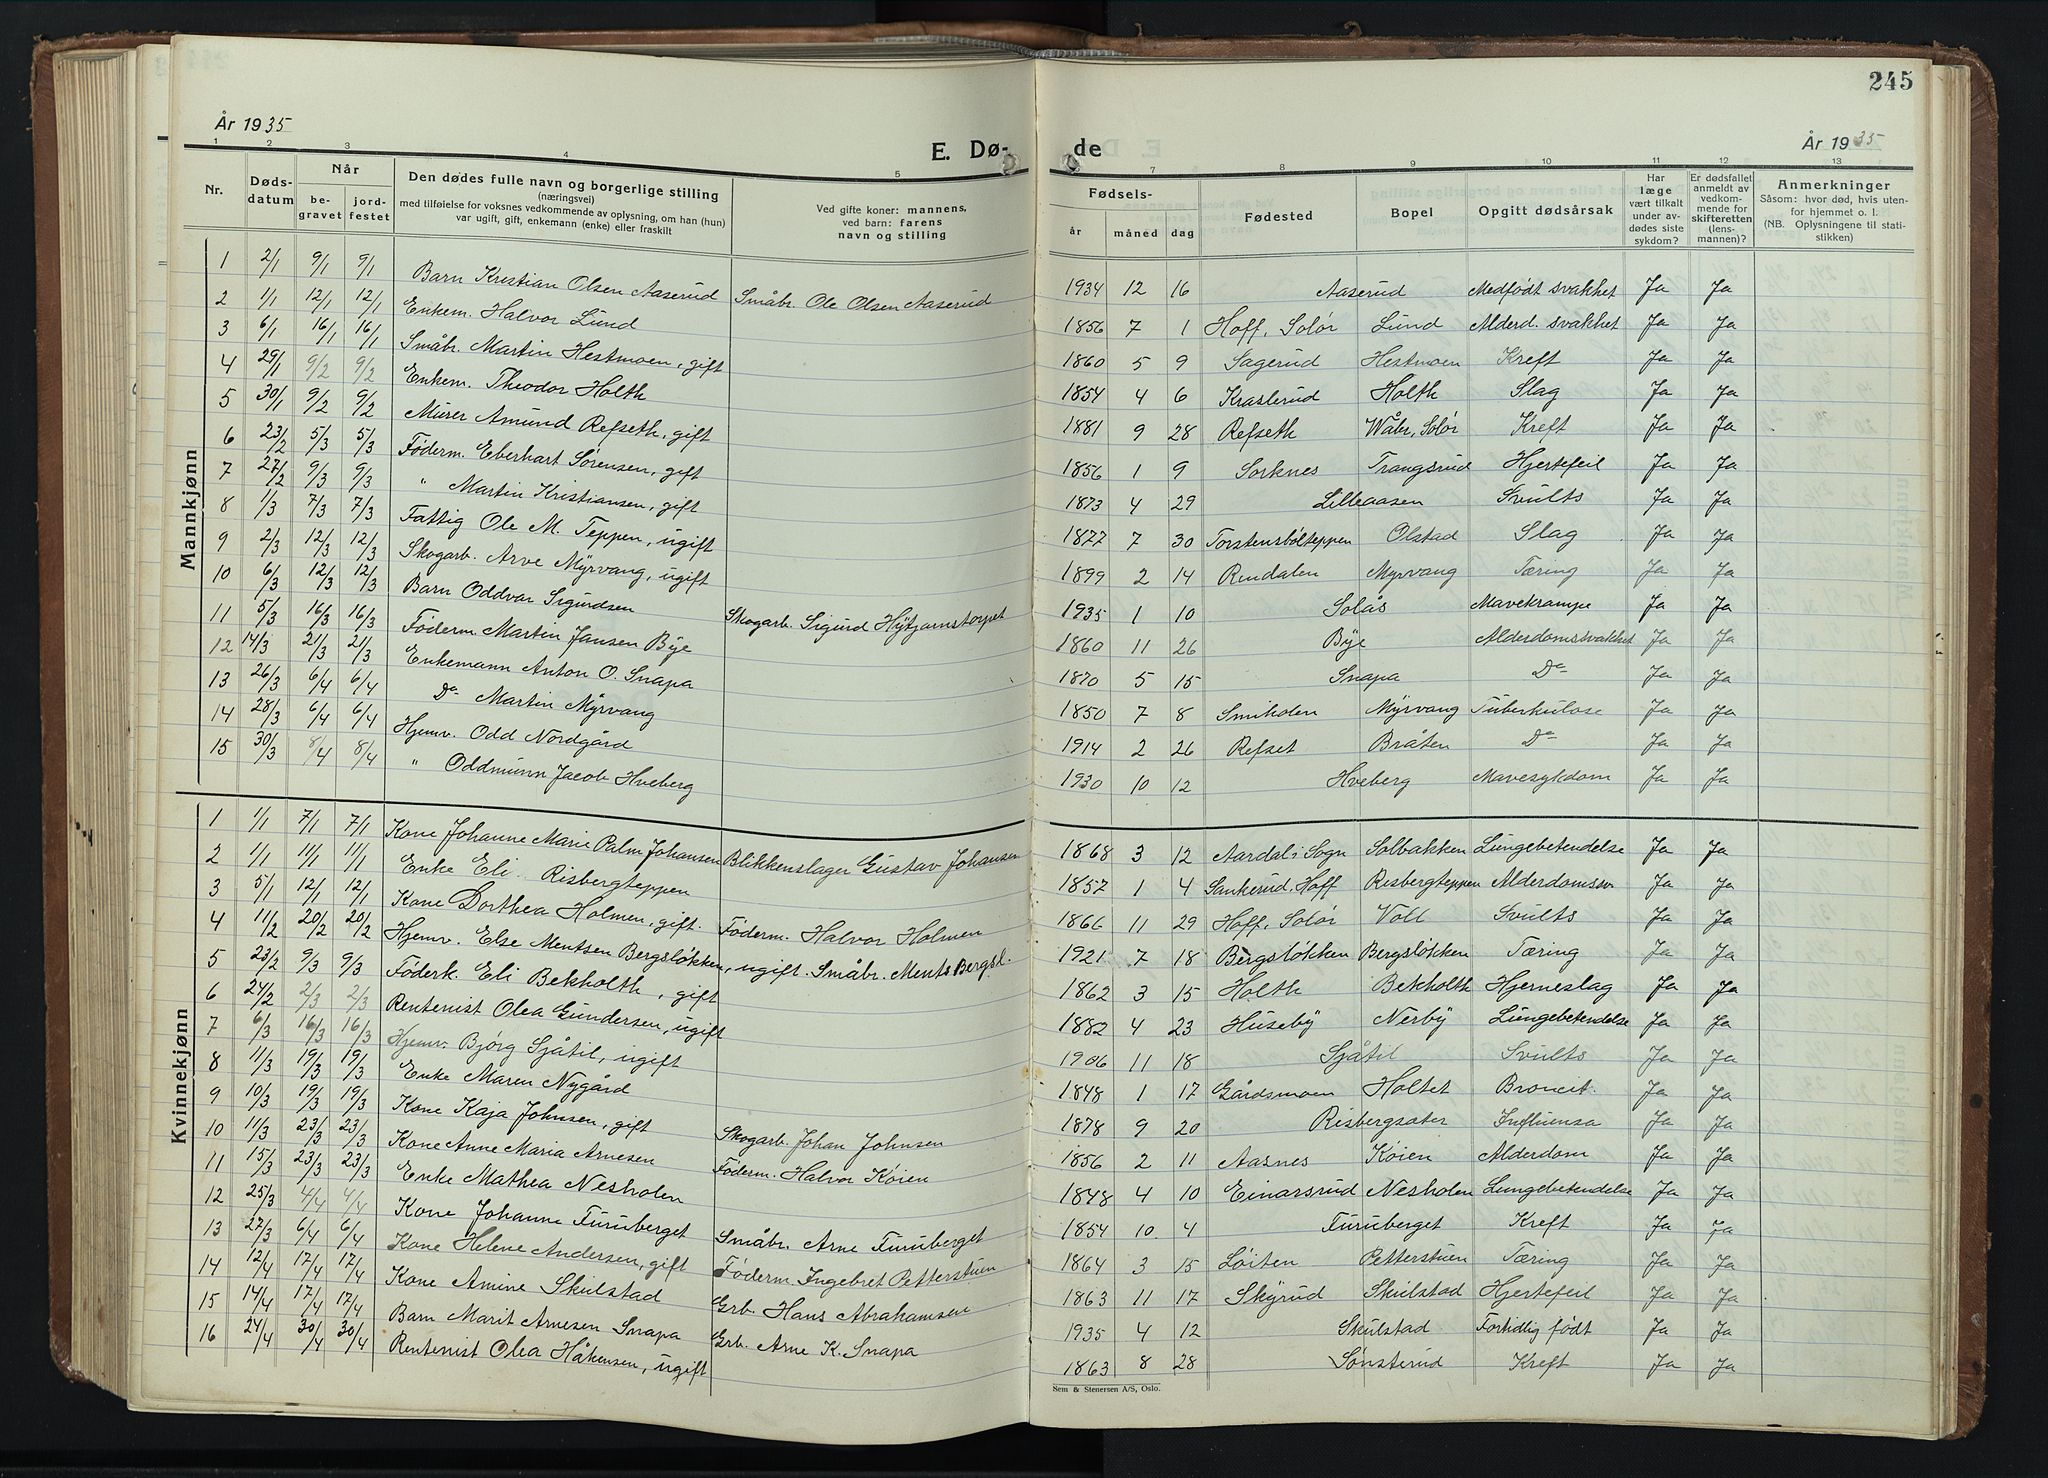 245
År 1935
E. Dø-
de
År 1935
1 2 3 4 5 7 8 9 10 11 12 13
Nr. Døds-datum Når begravet jordfestet Den dødes fulle navn og borgerlige stilling (næringsvei) med tilføielse for voksnes vedkommende av oplysning, om han (hun) var ugift, gift, enkemann (enke) eller fraskilt Ved gifte koner: mannens, ved barn: farens navn og stilling Fødsels- år måned dag Fødested Bopel Opgitt dødsårsak Har læge vært tilkalt under avdødes siste sykdom? Er dødsfallet anmeldt av vedkommende for skifteretten (lensmannen)? Anmerkninger Såsom: hvor død, hvis utenfor hjemmet o. l. (NB. Oplysningene til statistikken)
Mannkjønn
1 2/1 9/1 9/1 Barn Kristian Olsen Aaserud Småbr. Ole Olsen Aaserud 1934 12 16 Aaserud Medfødt svakhet Ja Ja
2 1/1 12/1 12/1 Enkem. Halvor Lund 1856 7 1 Hoff, Solør Lund Alderd. svakhet Ja Ja
3 6/1 16/1 16/1 Småbr. Martin Hestmoen, gift 1860 5 9 Sagerud Hestmoen Kreft Ja Ja
4 29/1 9/2 9/2 Enkem. Theodor Holth 1854 4 6 Kraslerud Holth Slag Ja Ja
5 30/1 9/2 9/2 Murer Amund Refseth, gift 1881 9 28 Refseth Wåler, Solør Kreft Ja Ja
6 23/2 5/3 5/3 Føderm. Eberhart Sørensen, gift 1856 1 9 Sorknes Trangsrud Hjertefeil Ja Ja
7 27/2 9/3 9/3 " Martin Kristiansen, gift 1873 4 29 Lilleaasen Svults Ja Ja
8 1/3 7/3 7/3 Fattig Ole M. Teppen, ugift 1877 7 30 Torstensbølteppen Olstad Slag Ja Ja
9 2/3 12/3 12/3 Skogarb. Arve Myrvang, ugift 1899 2 14 Rendalen Myrvang Tæring Ja Ja
10 6/3 12/3 12/3 Barn Oddvar Sigurdsen Skogarb. Sigurd Hytjarnstorpet 1935 1 10 Solås Mavekrampe Ja Ja
11 5/3 16/3 16/3 Føderm. Martin Jansen Bye 1860 11 26 Bye Alderdomssvakhet Ja Ja
12 14/3 21/3 21/3 Enkemann Anton O. Snapa 1870 5 15 Snapa Do Ja Ja
13 26/3 6/4 6/4 Do Martin Myrvang 1850 7 8 Smiholen Myrvang Tuberkulose Ja Ja
14 28/3 6/4 6/4 Hjemv. Odd Nordgård 1914 2 26 Refset Bråten Do Ja Ja
15 30/3 8/4 8/4 " Oddmunn Jacob Hveberg 1930 10 12 Hveberg Mavesykdom Ja Ja
Kvinnekjønn
1 1/1 7/1 7/1 Kone Johanne Marie Palm Johansen Blikkenslager Gustav Johansen 1868 3 12 Aardal i Sogn Solbakken Lungebetendelse Ja Ja
2 1/1 11/1 11/1 Enke Eli Risbergteppen 1857 1 4 Sankerud, Hoff Risbergteppen Alderdomssv. Ja Ja
3 5/1 12/1 12/1 Kone Dorthea Holmen, gift. Føderm. Halvor Holmen 1866 11 29 Hoff, Solør Voll Svults Ja Ja
4 11/2 20/2 20/2 Hjemv. Else Mentsen Bergsløkken, ugift. Småbr. Ments Bergsl. 1921 7 18 Bergsløkken Bergsløkken Tæring Ja Ja
5 23/2 9/3 9/3 Føderk. Eli Bekholth, gift 1862 3 15 Holth Bekholth Hjerneslag Ja Ja
6 24/2 2/3 2/3 Rentenist Olea Gundersen, ugift 1882 4 23 Huseby Nerby Lungebetendelse Ja Ja
7 6/3 16/3 16/3 Hjemv. Bjørg Sjåtil, ugift 1906 11 18 Sjåtil Svults Ja Ja
8 11/3 19/3 19/3 Enke Maren Nygård 1848 1 17 Gårdsmoen Holtet Broncit. Ja Ja
9 10/3 19/3 19/3 Kone Kaja Johnsen, gift Skogarb. Johan Johnsen 1878 9 20 Risbergsæter Influensa Ja Ja
10 11/3 23/3 23/3 Kone Anne Maria Arnesen Føderm. Halvor Køien 1856 2 11 Aasnes Køien Alderdom Ja Ja
11 15/3 23/3 23/3 Enke Mathea Nesholen 1848 4 10 Einarsrud Nesholen Lungebetendelse Ja Ja
12 25/3 4/4 4/4 Kone Johanne Furuberget Småbr. Arne Furuberget 1854 10 4 Furuberget Kreft Ja Ja
13 27/3 6/4 6/4 Kone Helene Andersen, gift Føderm. Ingebret Petterstuen 1864 3 15 Løiten Petterstuen Tæring Ja Ja
14 12/4 17/4 17/4 Kone Amine Skulstad Grb. Hans Abrahamsen 1863 11 17 Skyrud Skulstad Hjertefeil Ja Ja
15 14/4 17/4 17/4 Barn Marit Arnesen Snapa Grb. Arne K. Snapa 1935 4 12 Skulstad Fortidlig født Ja Ja
16 24/4 30/4 30/4 Rentenist Olea Håkensen, ugift 1863 8 28 Sønsterud Kreft Ja Ja
Sem & Stenersen A/S, Oslo.